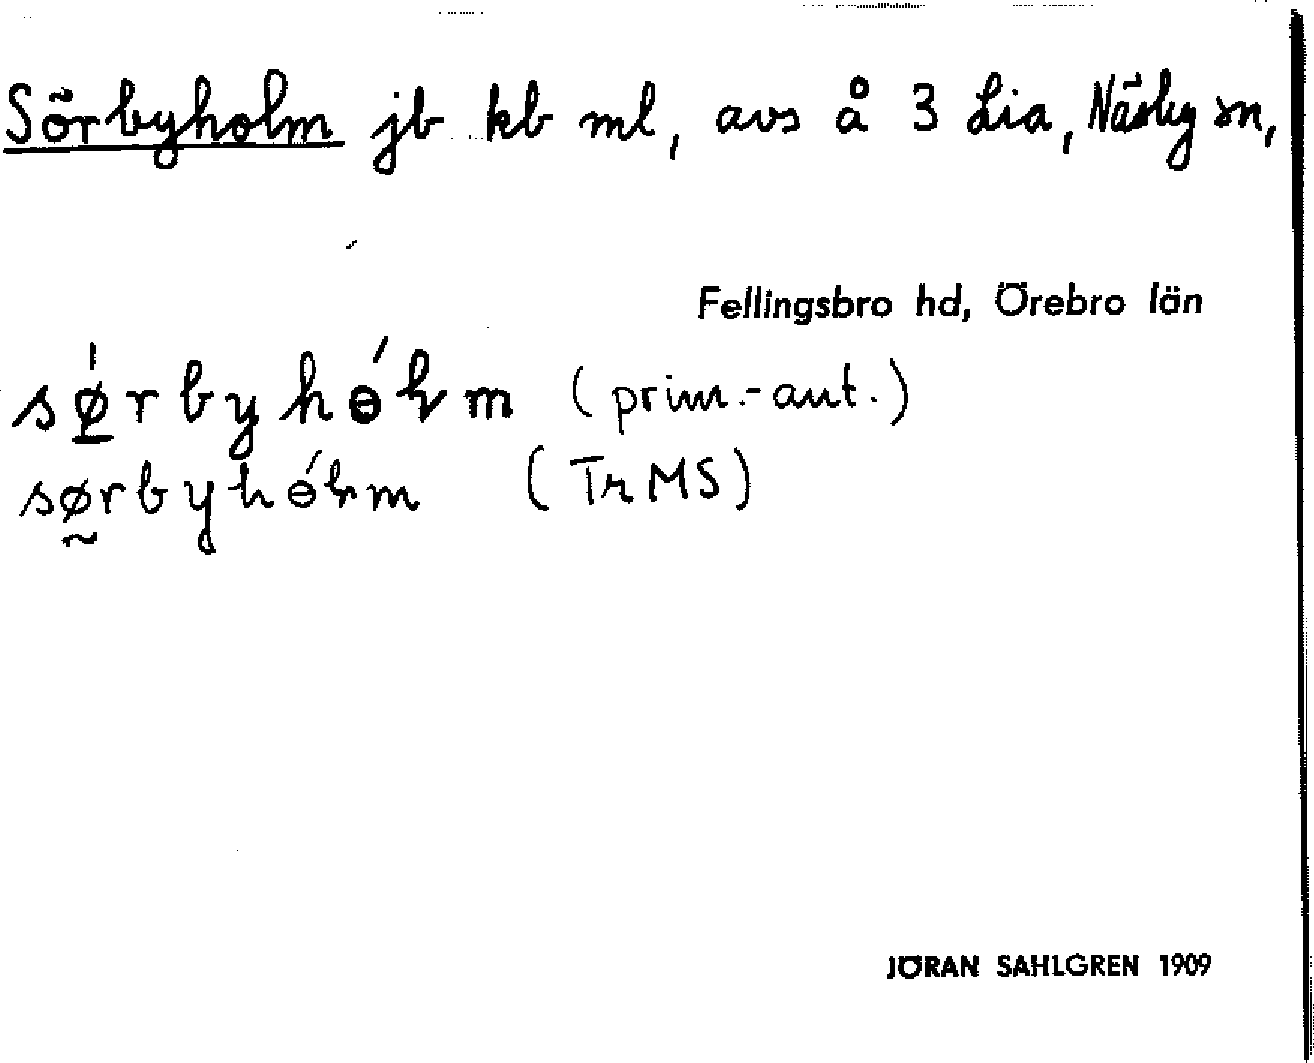 Sörbyholm jb kb ml, avs å 3 Lia, Näsby sn,
Fellingsbro hd, Örebro län
sǿ̱rbyhɵ́ɫm (prim.-ant.)
sø̰rbyhɵ́ɫm (TrMS)
JÖRAN SAHLGREN 1909